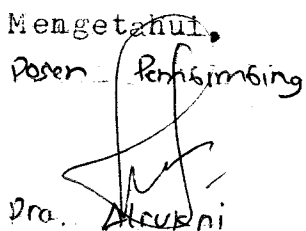 Mengetahui.
Dosen Pembimbing
Dra.